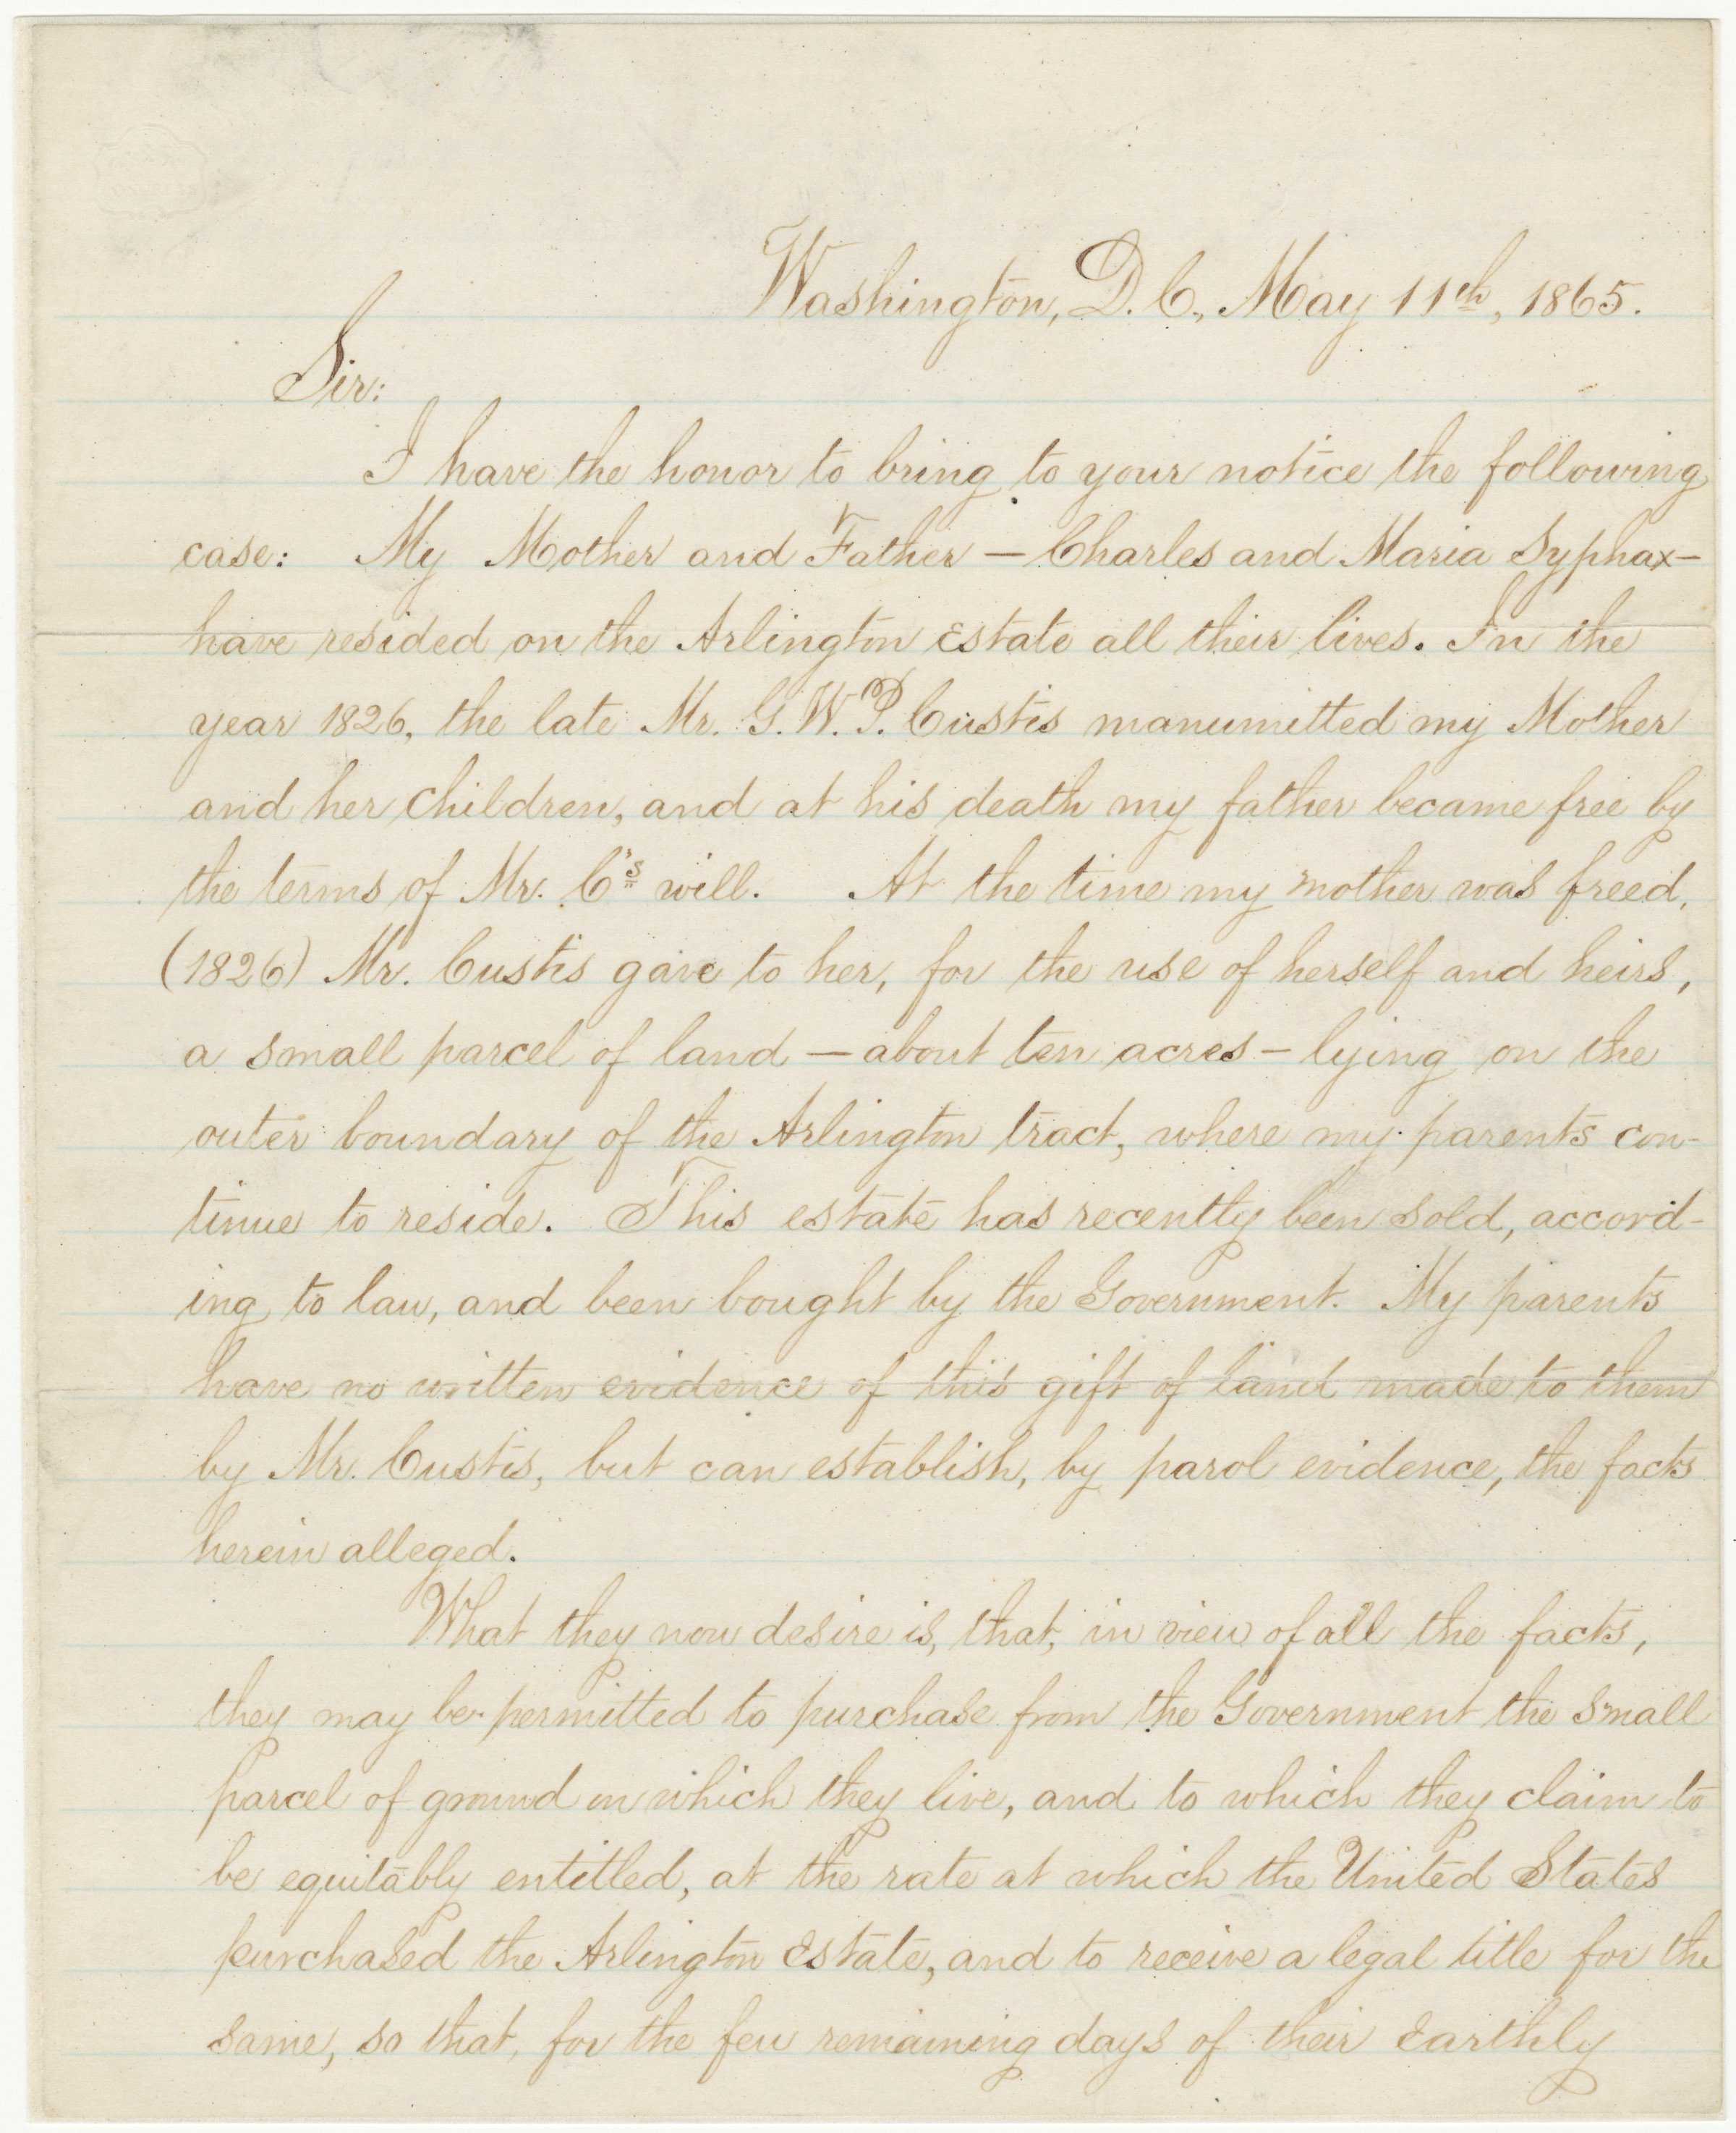 Washington, D.C., May 11th, 1865.
Sir:
I have the honor to bring to your notice the following
case: My Mother and Father — Charles and Maria Syphax —
have resided on the Arlington Estate all their lives. In the
year 1826, the late Mr. G. W. P. Custis manumitted my Mother
and her children, and at his death my father became free by
the terms of Mr. C's will. At the time my mother was freed,
(1826) Mr. Custis gave to her, for the use of herself and heirs,
a small parcel of land — about ten acres — lying on the
outer boundary of the Arlington tract, where my parents con-
tinue to reside. This estate has recently been sold, accord-
ing to law, and been bought by the Government. My parents
have no written evidence of this gift of land made to them
by Mr. Custis, but can establish, by parol evidence, the facts
herein alleged.
What they now desire is, that, in view of all the facts,
they may be permitted to purchase from the Government the small
parcel of ground on which they live, and to which they claim to
be equitably entitled, at the rate at which the United States
purchased the Arlington Estate, and to receive a legal title for the
same, so that, for the few remaining days of their earthly